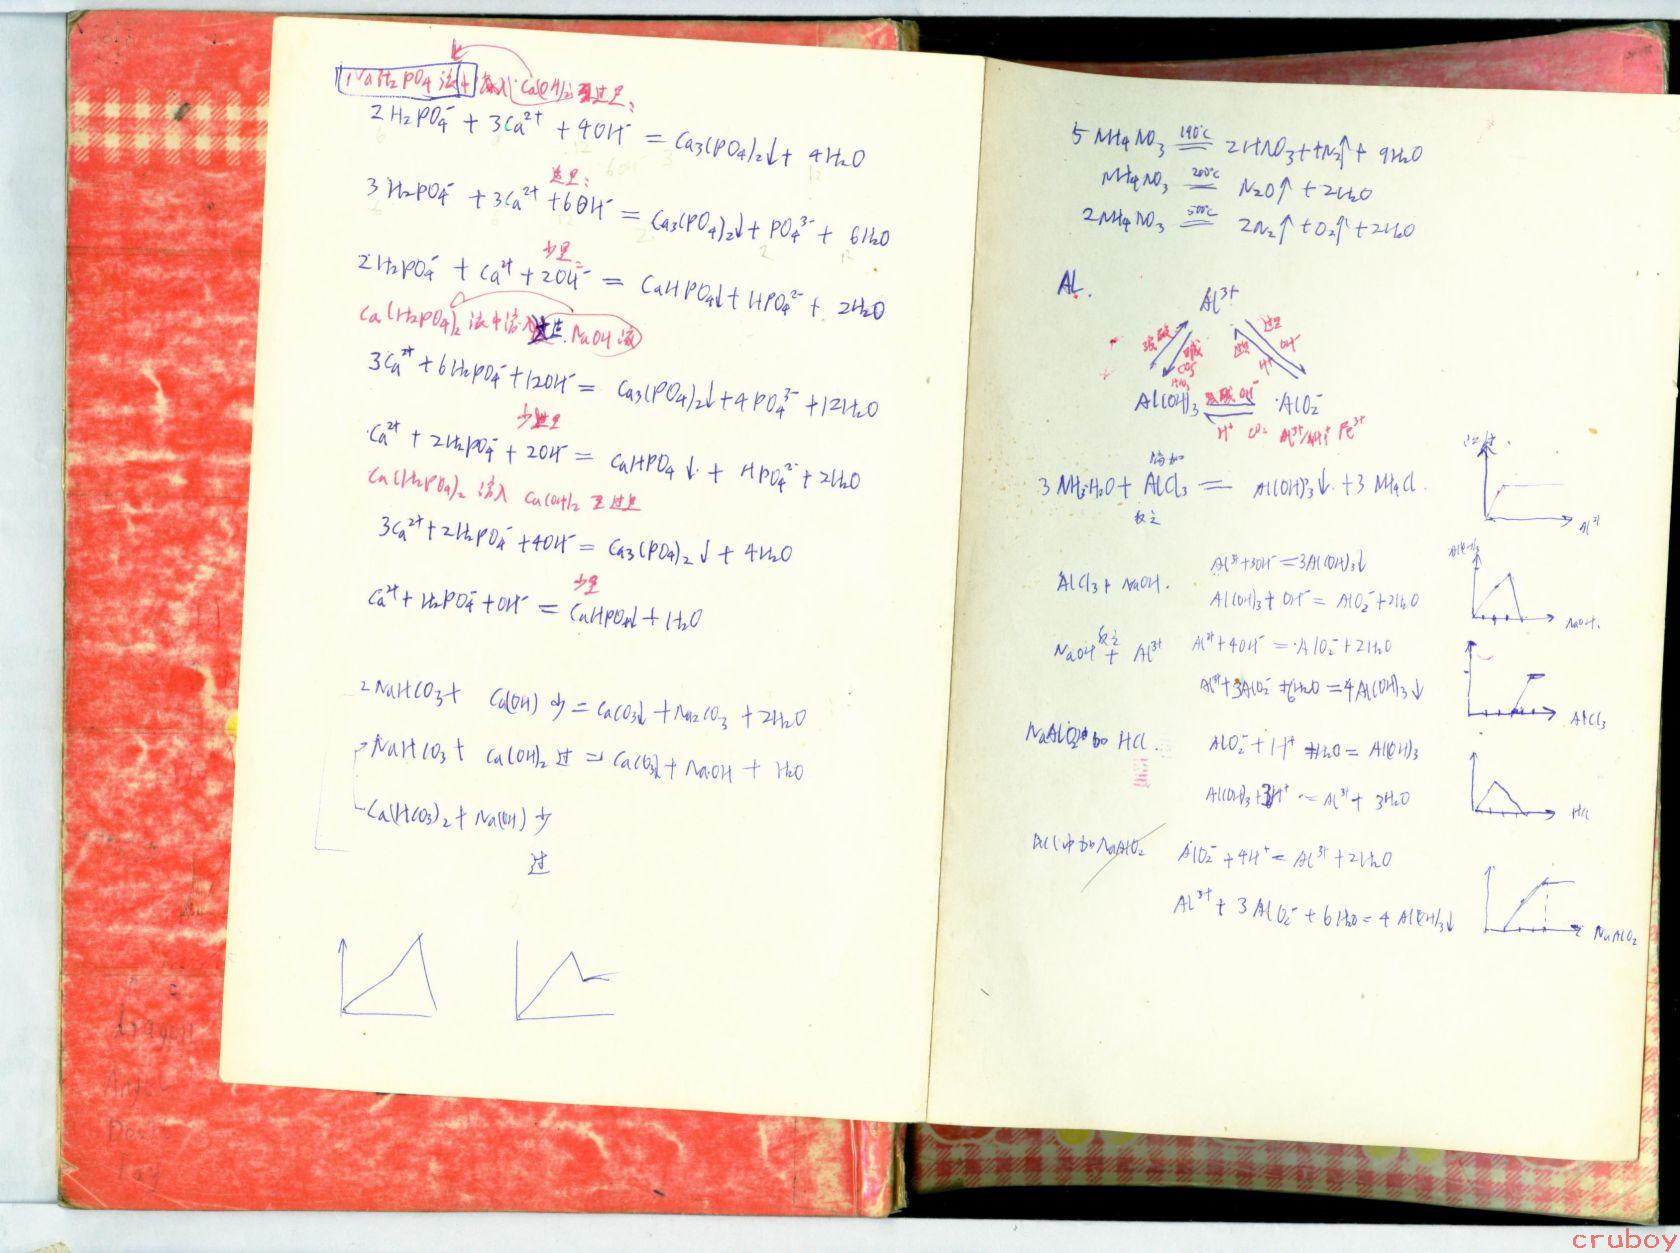 NaH₂PO₄液中滴入Ca(OH)₂至过足:
2H₂PO₄⁻ + 3Ca²⁺ + 4OH⁻ = Ca₃(PO₄)₂↓ + 4H₂O
过足:
3H₂PO₄⁻ + 3Ca²⁺ + 6OH⁻ = Ca₃(PO₄)₂↓ + PO₄³⁻ + 6H₂O
少足:
2H₂PO₄⁻ + Ca²⁺ + 2OH⁻ = CaHPO₄↓ + HPO₄²⁻ + 2H₂O
Ca(H₂PO₄)₂液中滴入过足NaOH液
3Ca²⁺ + 6H₂PO₄⁻ + 12OH⁻ = Ca₃(PO₄)₂↓ + 4PO₄³⁻ + 12H₂O
少足
Ca²⁺ + 2H₂PO₄⁻ + 2OH⁻ = CaHPO₄↓ + HPO₄²⁻ + 2H₂O
Ca(H₂PO₄)₂ 滴入 Ca(OH)₂ 至过足
3Ca²⁺ + 2H₂PO₄⁻ + 4OH⁻ = Ca₃(PO₄)₂↓ + 4H₂O
少足
Ca²⁺ + H₂PO₄⁻ + OH⁻ = CaHPO₄↓ + H₂O
2NaHCO₃ + Ca(OH) 少 = CaCO₃↓ + Na₂CO₃ + 2H₂O
NaHCO₃ + Ca(OH)₂ 过 = CaCO₃↓ + NaOH + H₂O
Ca(HCO₃)₂ + Na(OH) 少
过
5NH₄NO₃ 190℃ = 2HNO₃ + 4N₂↑ + 9H₂O
NH₄NO₃ 200℃ = N₂O↑ + 2H₂O
2NH₄NO₃ 500℃ = 2N₂↑ + O₂↑ + 2H₂O
Al.
Al³⁺
强酸 碱 过足 OH⁻
H⁺
Al(OH)₃ 强碱 OH⁻ AlO₂⁻
H⁺ CO₂ Al³⁺/NH₄⁺ Fe³⁺
滴加
3NH₃·H₂O + AlCl₃ = Al(OH)₃↓ + 3NH₄Cl
反之
Al³⁺
AlCl₃ + NaOH.
Al³⁺ + 3OH⁻ = 3Al(OH)₃↓
Al(OH)₃ + OH⁻ = AlO₂⁻ + 2H₂O
NaOH.
反之
NaOH + Al³⁺
Al³⁺ + 4OH⁻ = AlO₂⁻ + 2H₂O
Al³⁺ + 3AlO₂⁻ + 6H₂O = 4Al(OH)₃↓
AlCl₃
NaAlO₂中加 HCl.
AlO₂⁻ + H⁺ + H₂O = Al(OH)₃
Al(OH)₃ + 3H⁺ = Al³⁺ + 3H₂O
HCl
HCl中加NaAlO₂
AlO₂⁻ + 4H⁺ = Al³⁺ + 2H₂O
Al³⁺ + 3AlO₂⁻ + 6H₂O = 4Al(OH)₃↓
NaAlO₂
dragon
cruboy